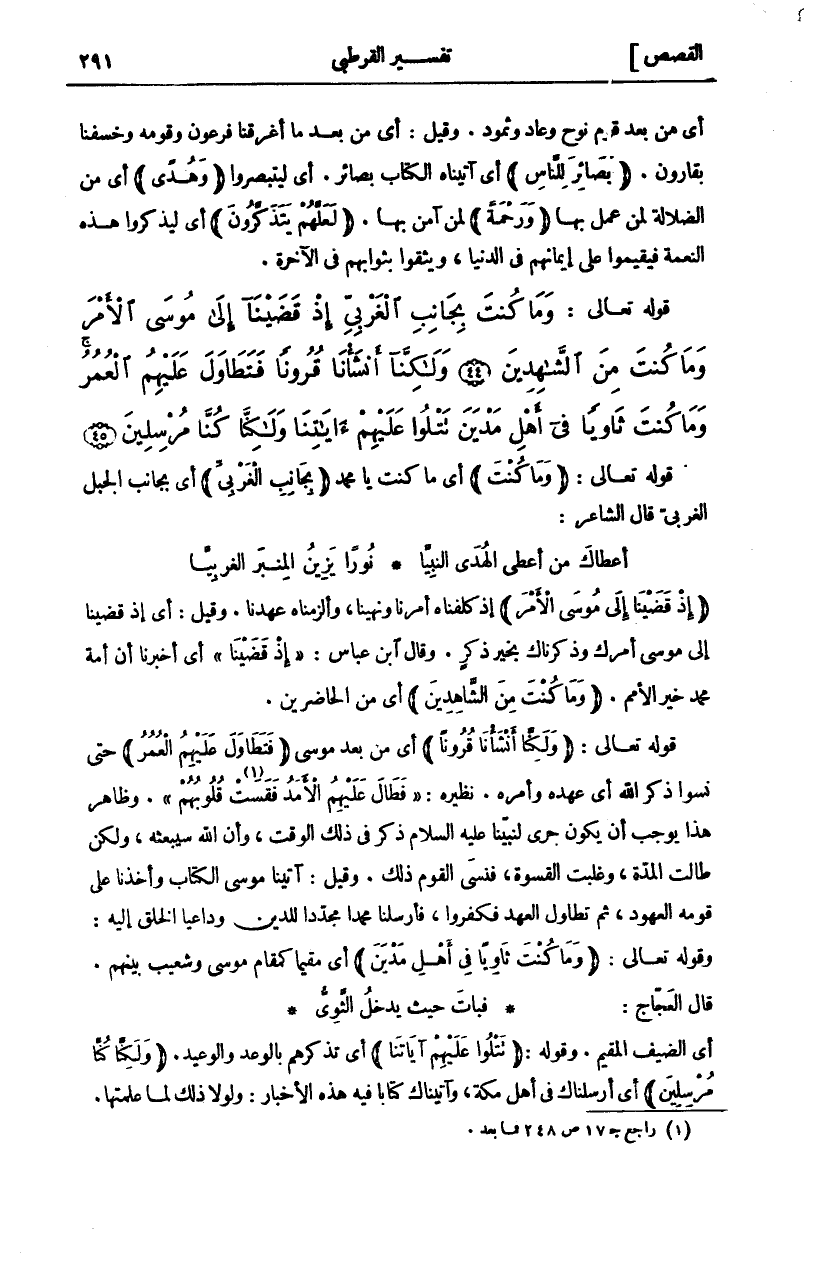 القصص ] تفسير القرطبي ٢٩١
أى من بعد قوم نوح وعاد وثمود . وقيل : أى من بعد ما أغرقنا فرعون وقومه وخسفنا
بقارون . ﴿ بَصَائِرَ لِلنَّاسِ ﴾ أى آتيناه الكتاب بصائر . أى ليتبصروا ﴿ وَهُدًى ﴾ أى من
الضلالة لمن عمل بها ﴿ وَرَحْمَةً ﴾ لمن آمن بها . ﴿ لَعَلَّهُمْ يَتَذَكَّرُونَ ﴾ أى ليذكروا هذه
النعمة فيقيموا على إيمانهم فى الدنيا ، ويثقوا بثوابهم فى الآخرة .
قوله تعالى : وَمَا كُنتَ بِجَانِبِ ٱلْغَرْبِيِّ إِذْ قَضَيْنَآ إِلَىٰ مُوسَى ٱلْأَمْرَ
وَمَا كُنتَ مِنَ ٱلشَّـٰهِدِينَ ﴿٤٤﴾ وَلَـٰكِنَّآ أَنشَأْنَا قُرُونًا فَتَطَاوَلَ عَلَيْهِمُ ٱلْعُمُرُ ۚ
وَمَا كُنتَ ثَاوِيًا فِىٓ أَهْلِ مَدْيَنَ تَتْلُوا عَلَيْهِمْ ءَايَـٰتِنَا وَلَـٰكِنَّا كُنَّا مُرْسِلِينَ ﴿٤٥﴾
قوله تعالى : ﴿ وَمَا كُنْتَ ﴾ أى ما كنت يا محمد ﴿ بِجَانِبِ الْغَرْبِيِّ ﴾ أى بجانب الجبل
الغربىّ قال الشاعر :
أعطاكَ من أعطى الهُدَى النبِيَّا * نُورًا يَزِينُ المِنبَرَ الغربِيَّا
﴿ إِذْ قَضَيْنَا إِلَى مُوسَى الْأَمْرَ ﴾ إذ كلفناه أمرنا ونهينا ، وألزمناه عهدنا . وقيل : أى إذ قضينا
إلى موسى أمرك وذكرناك بخير ذكرٍ . وقال ٱبن عباس : « إِذْ قَضَيْنَا » أى أخبرنا أن أمة
محمد خير الأمم . ﴿ وَمَا كُنْتَ مِنَ الشَّاهِدِينَ ﴾ أى من الحاضرين .
قوله تعالى : ﴿ وَلَكِنَّا أَنْشَأْنَا قُرُونًا ﴾ أى من بعد موسى ﴿ فَتَطَاوَلَ عَلَيْهِمُ الْعُمُرُ ﴾ حتى
نسوا ذكر الله أى عهده وأمره . نظيره : « فَطَالَ عَلَيْهِمُ الْأَمَدُ فَقَسَتْ قُلُوبُهُمْ (١) » . وظاهر
هذا يوجب أن يكون جرى لنبيّنا عليه السلام ذكر فى ذلك الوقت ، وأن الله سيبعثه ، ولكن
طالت المدّة ، وغلبت القسوة ، فنسَى القوم ذلك . وقيل : آتينا موسى الكتاب وأخذنا على
قومه العهود ، ثم تطاول العهد فكفروا ، فأرسلنا محمدا مجدّدا للدين وداعيا الخلق إليه :
وقوله تعالى : ﴿ وَمَا كُنْتَ ثَاوِيًا فِى أَهْلِ مَدْيَنَ ﴾ أى مقيما كمقام موسى وشعيب بينهم .
قال العَجّاج : * فباتَ حيث يدخلُ الثَّوِىُّ *
أى الضيف المقيم . وقوله : ﴿ تَتْلُوا عَلَيْهِمْ آيَاتِنَا ﴾ أى تذكرهم بالوعد والوعيد . ﴿ وَلَكِنَّا كُنَّا
مُرْسِلِينَ ﴾ أى أرسلناك فى أهل مكة ، وآتيناك كتابا فيه هذه الأخبار : ولولا ذلك لما علمتها .
(١) راجع جـ ١٧ ص ٢٤٨ فما بعد .